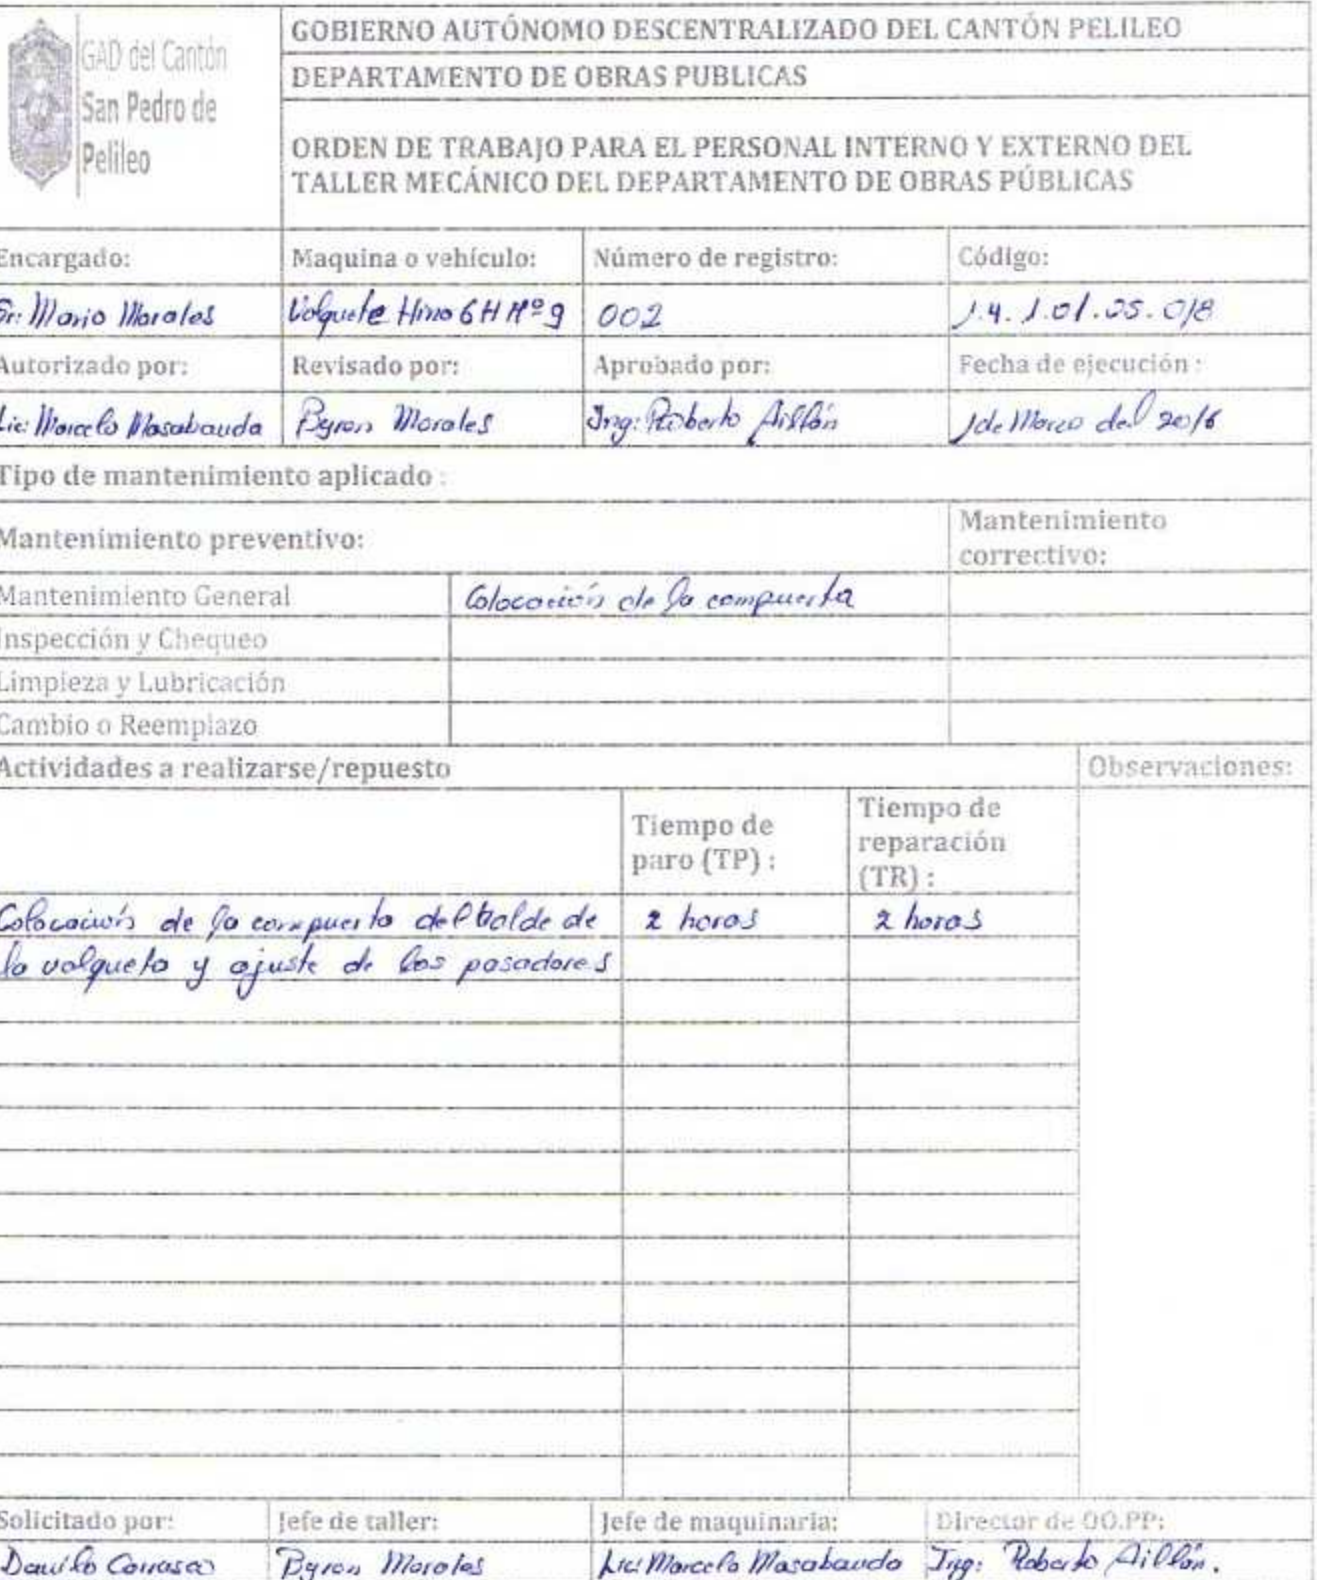 GAD del Cantón
San Pedro de
Pelileo
GOBIERNO AUTÓNOMO DESCENTRALIZADO DEL CANTÓN PELILEO
DEPARTAMENTO DE OBRAS PUBLICAS
ORDEN DE TRABAJO PARA EL PERSONAL INTERNO Y EXTERNO DEL
TALLER MECÁNICO DEL DEPARTAMENTO DE OBRAS PÚBLICAS
Encargado: Maquina o vehículo: Número de registro: Código:
Sr: Mario Morales Volquete Hino GH Nº 9 002 1.4.1.01.05.018
Autorizado por: Revisado por: Aprobado por: Fecha de ejecución :
Lic: Marcelo Masabanda Byron Morales Ing: Roberto Aillón 1 de Marzo del 2016
Tipo de mantenimiento aplicado :
Mantenimiento preventivo: Mantenimiento
correctivo:
Mantenimiento General Colocación de la compuerta
Inspección y Chequeo
Limpieza y Lubricación
Cambio o Reemplazo
Actividades a realizarse/repuesto Observaciones:
Tiempo de
paro (TP) :
Tiempo de
reparación
(TR) :
Colocación de la compuerta del balde de 2 horas 2 horas
la volqueta y ajuste de los pasadores
Solicitado por: Jefe de taller: Jefe de maquinaria: Director de OO.PP:
Danilo Carrasco Byron Morales Lic: Marcelo Masabanda Ing: Roberto Aillón.